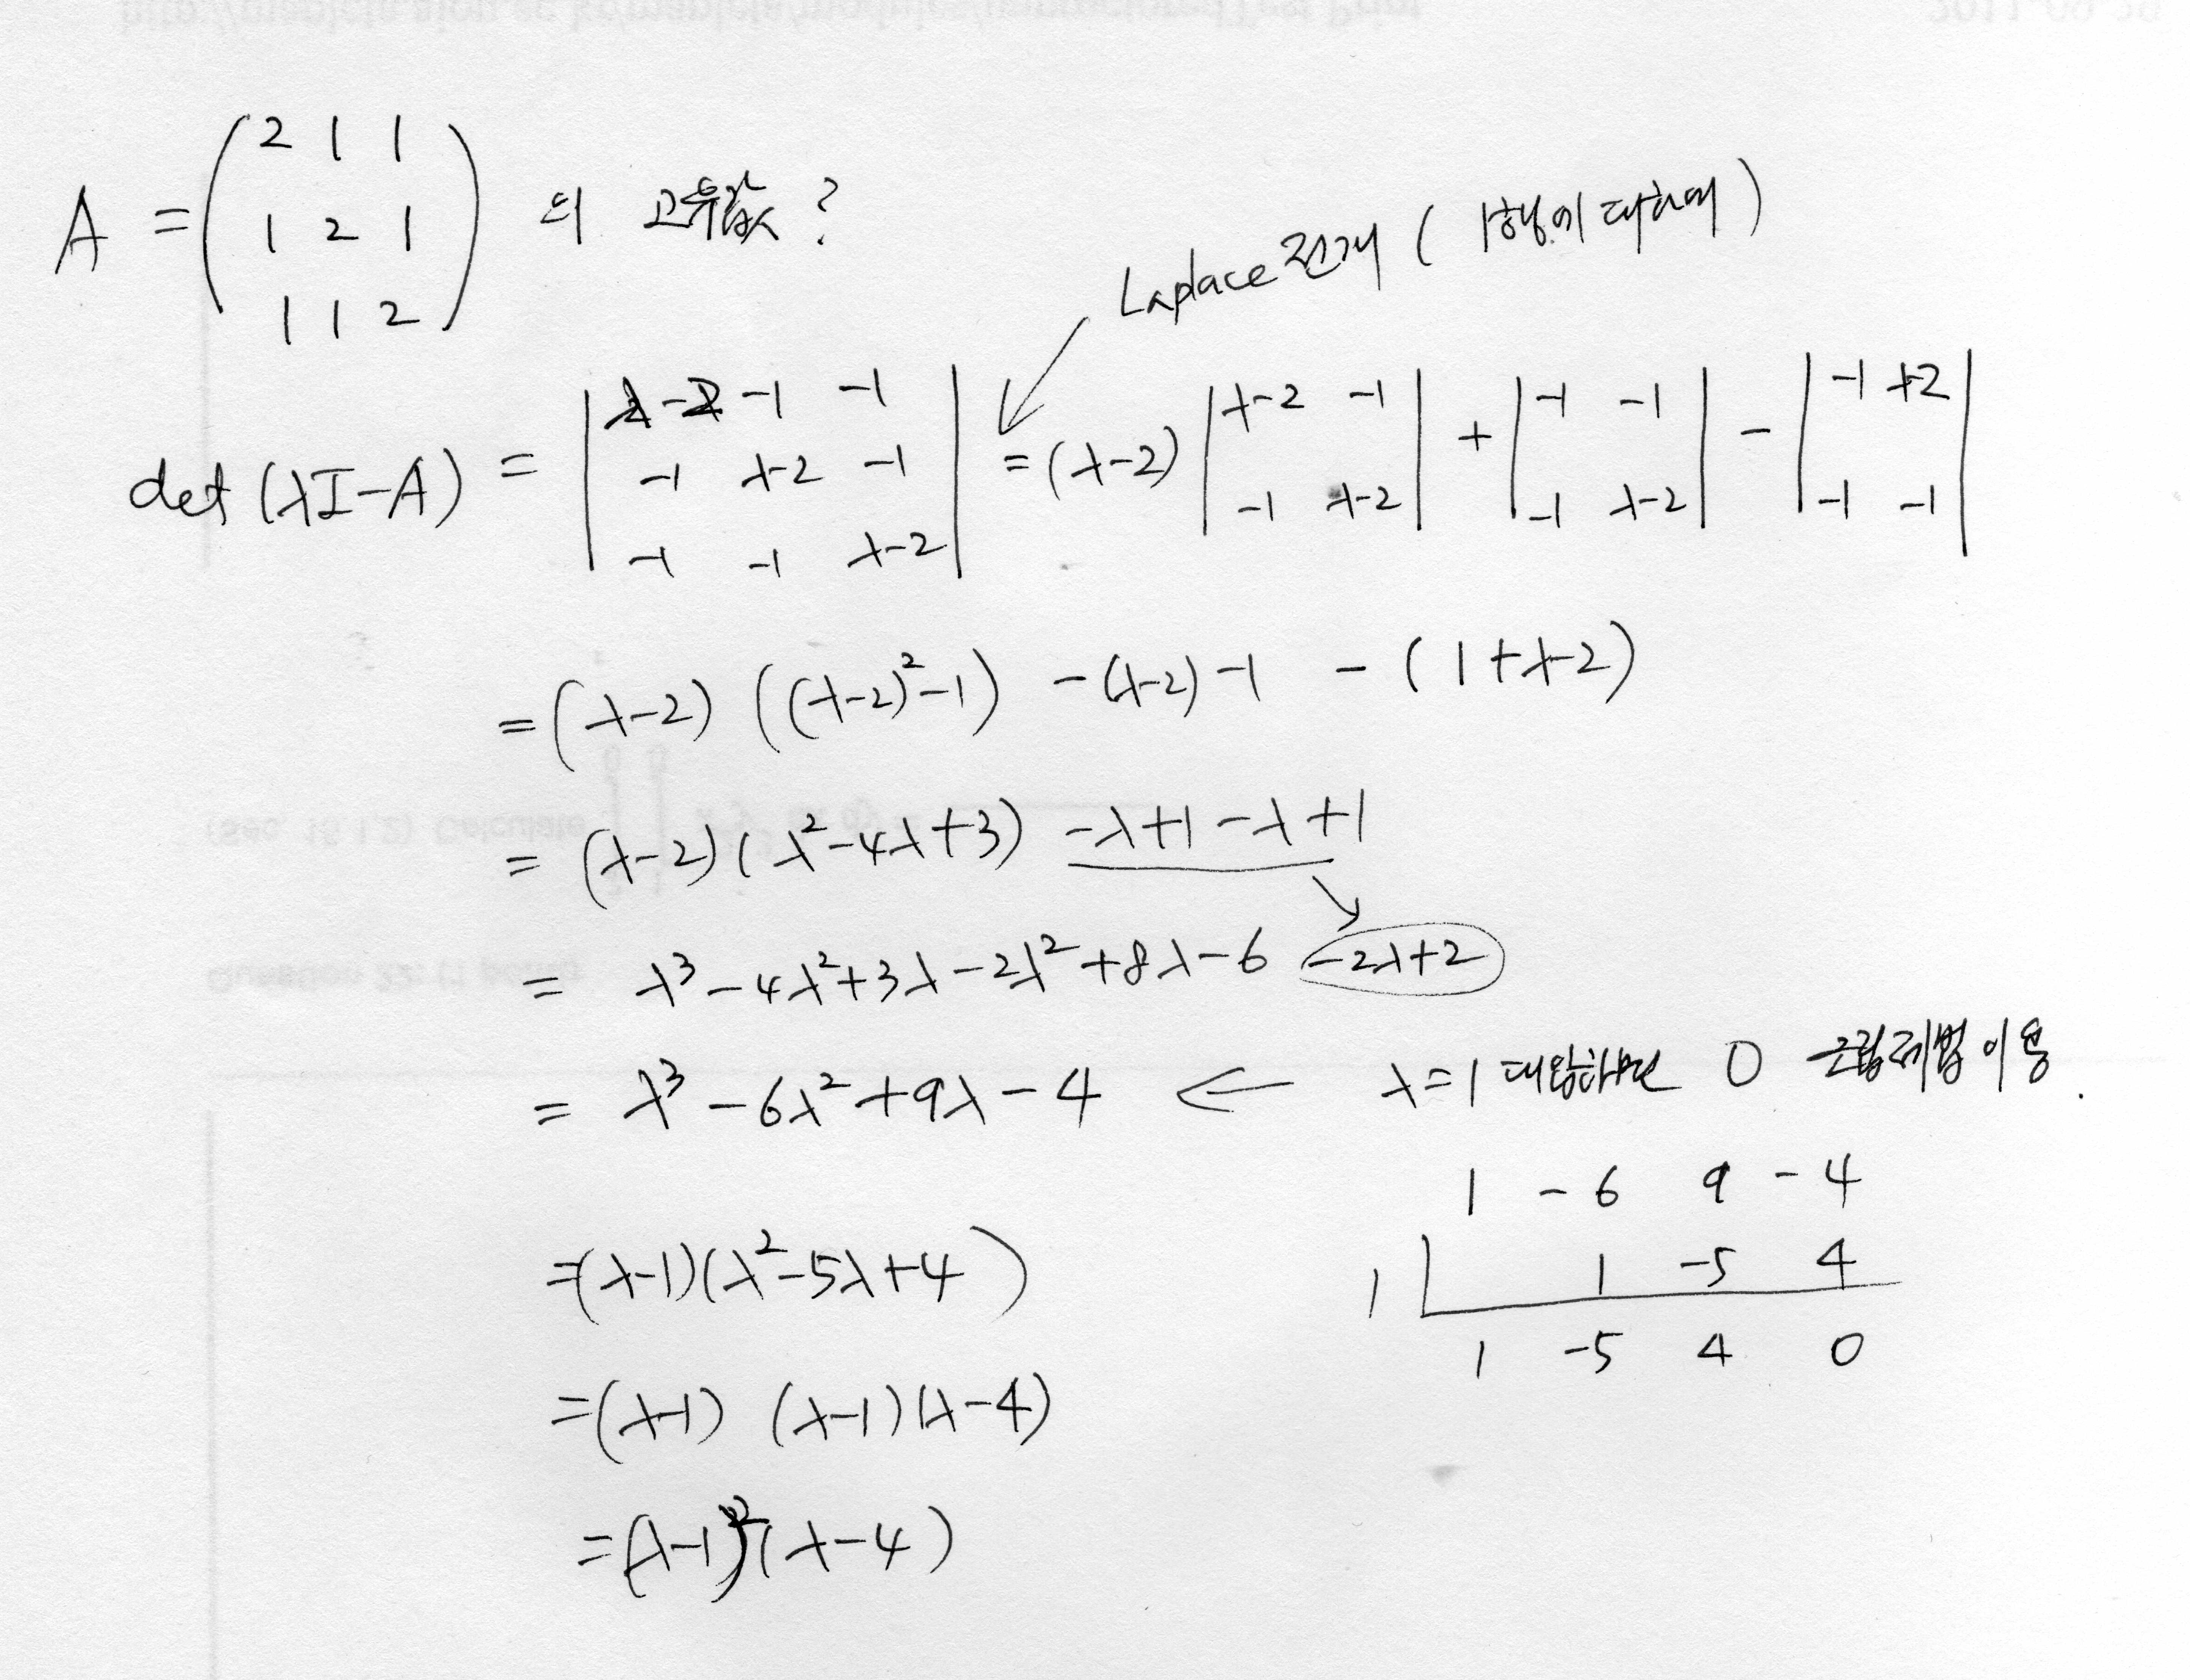 A = ( 2 1 1 의 고유값 ?
1 2 1
1 1 2 )
Laplace 전개 ( 1행에 대하여 )
det (λI-A) = | λ-2 -1 -1 | = (λ-2) | λ-2 -1 | + | -1 -1 | - | -1 λ-2 |
-1 λ-2 -1 -1 λ-2 -1 λ-2 -1 -1
-1 -1 λ-2
= (λ-2) ((λ-2)²-1) - (λ-2) -1 - (1+λ-2)
= (λ-2) (λ²-4λ+3) -λ+1 -λ+1
= λ³-4λ²+3λ-2λ²+8λ-6 -2λ+2
= λ³-6λ²+9λ-4 ← λ=1 대입하면 0 조립제법 이용.
1 -6 9 -4
=(λ-1)(λ²-5λ+4) 1 | 1 -5 4
1 -5 4 0
=(λ-1) (λ-1)(λ-4)
=(λ-1)²(λ-4)